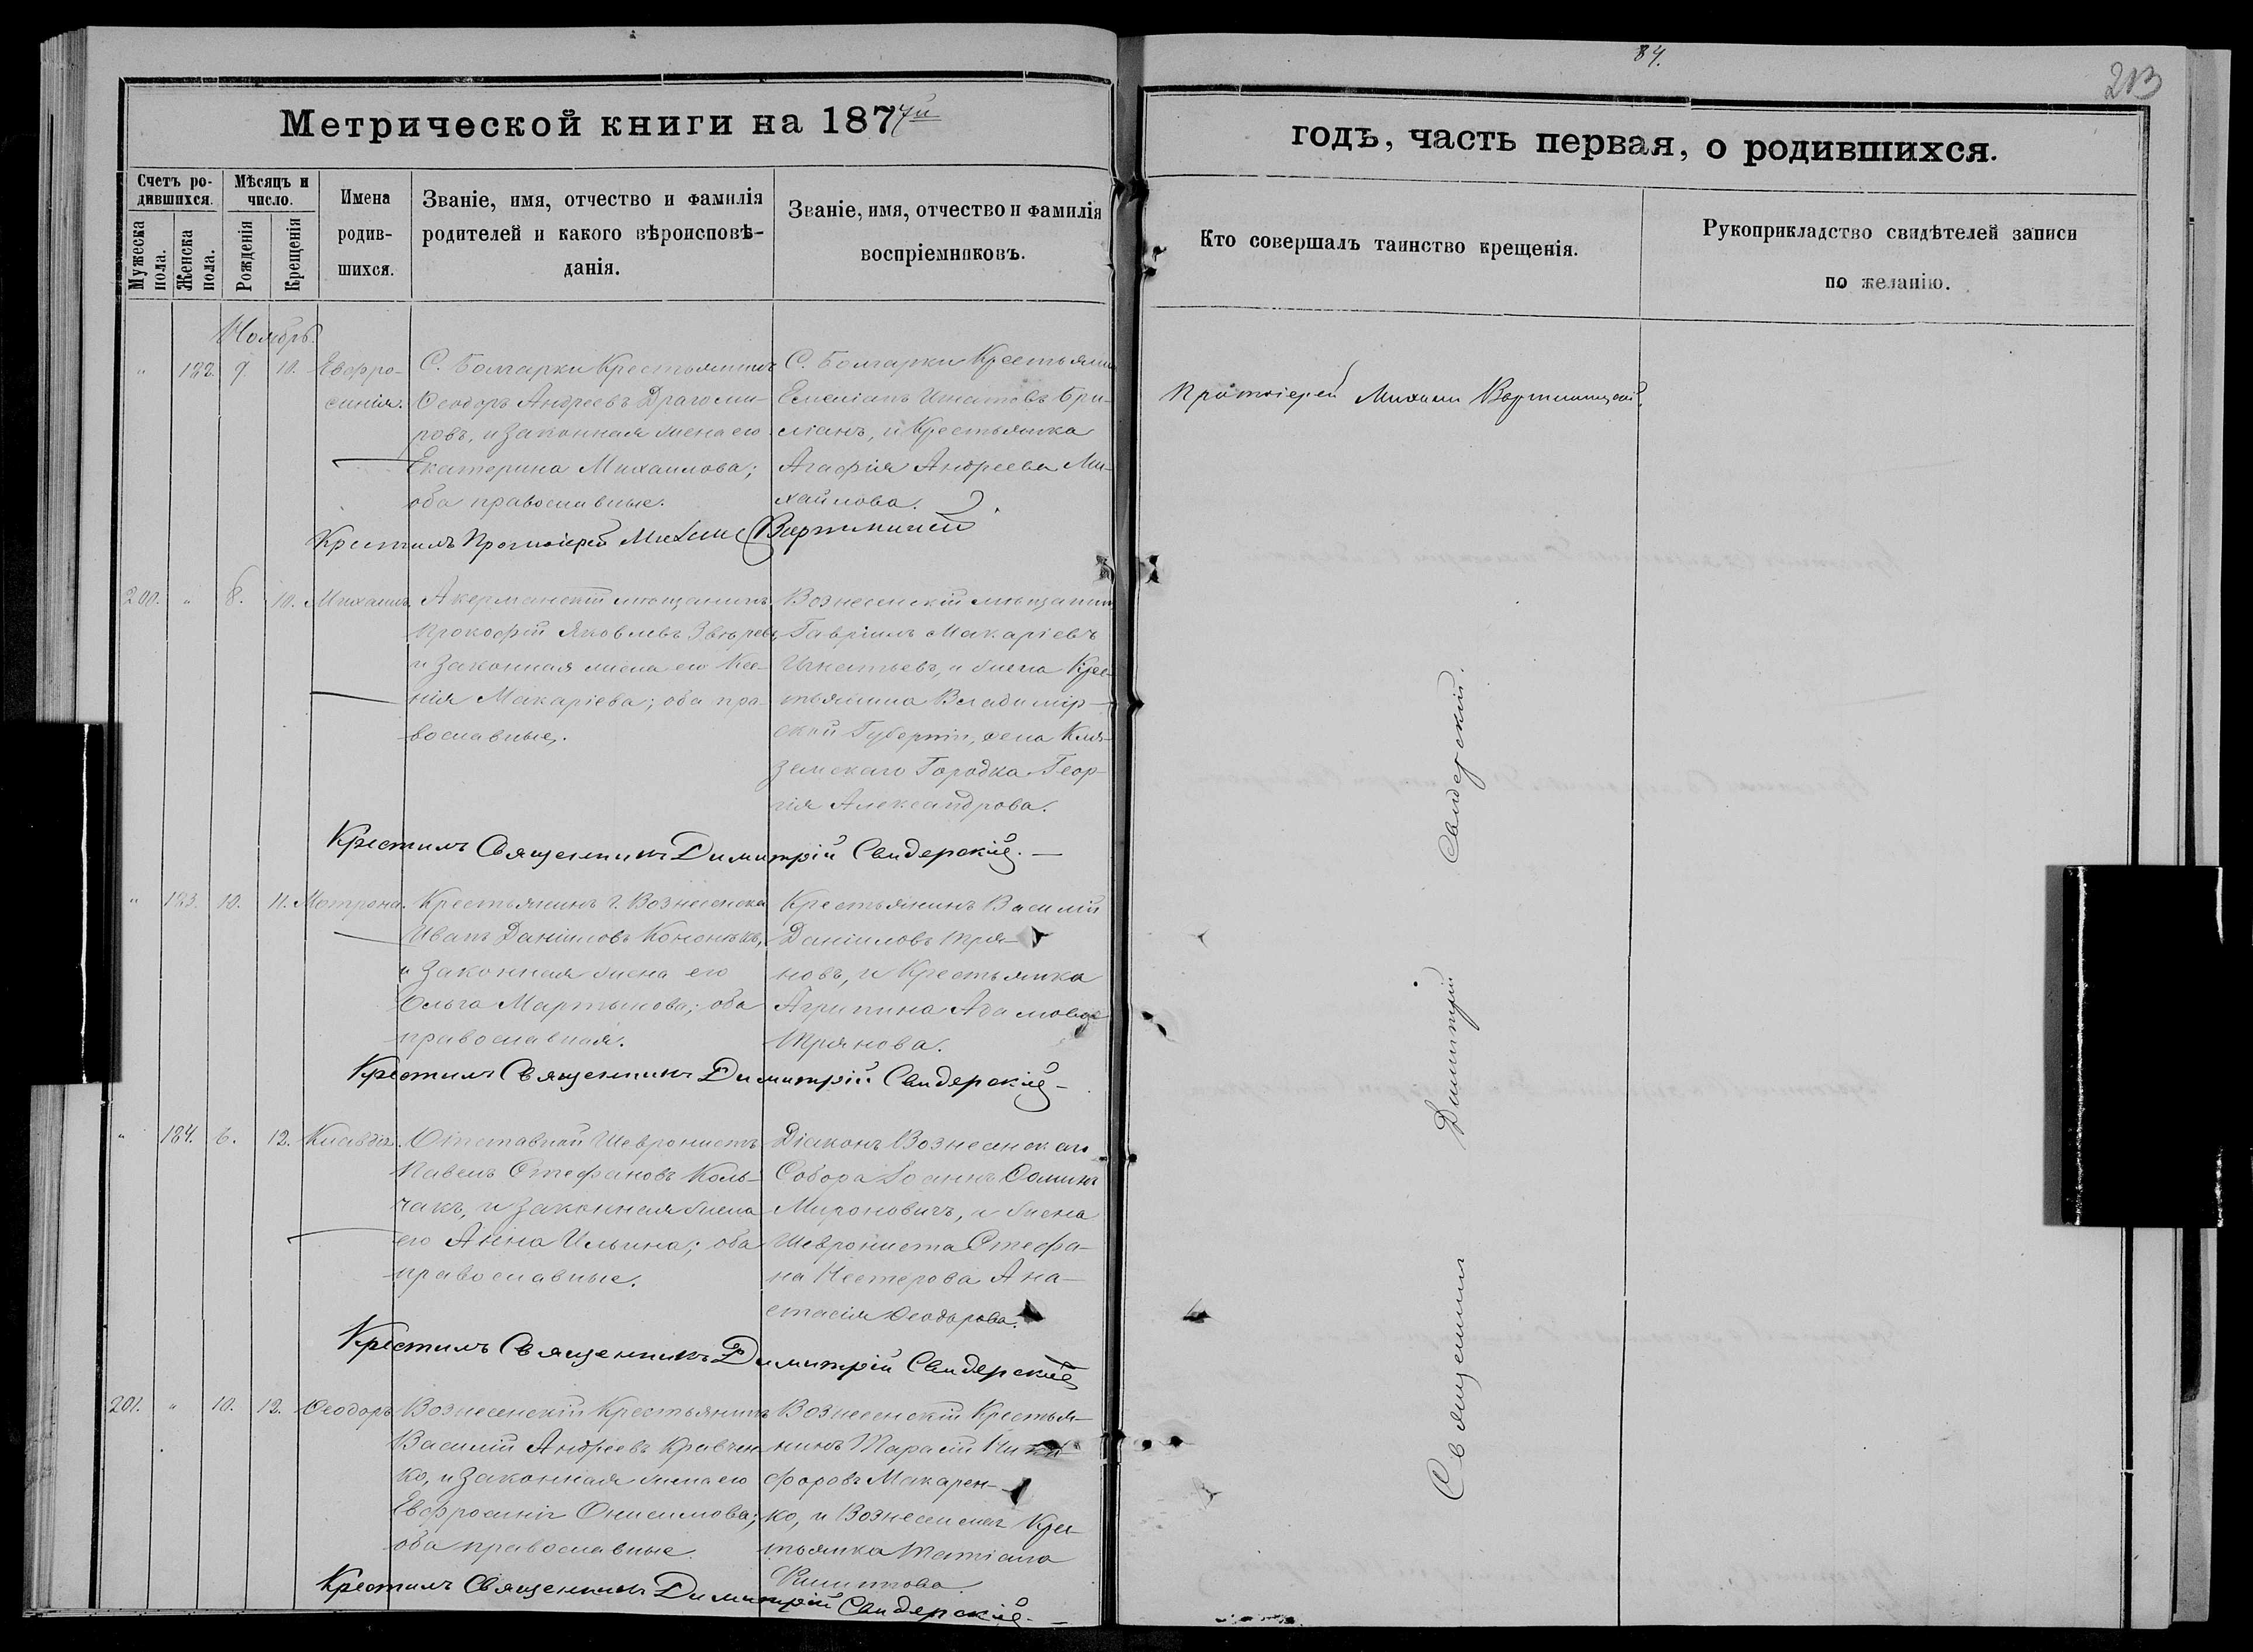 84.
213
Метрической книги на 1877й
годъ, часть первая, о родившихся.
Счетъ ро-
дившихся.
Мужеска
пола.
Женска
пола.
Мѣсяцъ и
число.
Рожденія
Крещенія
Имена
родив-
шихся.
Званіе, имя, отчество и фамилія
родителей и какого вѣроисповѣ-
данія.
Званіе, имя, отчество и фамилія
воспріемниковъ.
Кто совершалъ таинство крещенія.
Рукоприкладство свидѣтелей записи
по желанію.
Ноябрь.
" 182. 9. 10. Евфро-
синія.
С. Болгарки Крестьянинъ
Ѳеодоръ Андреевъ Драгоми-
ровъ, и законная жена его
Екатерина Михаилова;
оба православные.
С. Болгарки Крестьянин
Емеліанъ Игнатовъ
и Крестьянка
Агафія Андреева Ми-
хайлова.
Крестилъ Протоіерей Михаил
Протоіерей Михаил
200. " 8. 10. Михаилъ
Акерманскій мѣщанинъ
Прокофій Яковлевъ Звѣревъ
и законная жена его Ксе-
нія Макаріева; оба пра-
вославные.
Вознесенскій мѣщанин
Гавріилъ Макаріевъ
Игнатьевъ, и жена Крес-
тьянина Владимір-
ской Губерніи, села Кля-
земскаго Городка Геор-
гія Александрова.
Крестилъ Священникъ Димитрій Свидерскій. —
" 183. 10. 11. Мотрона.
Крестьянинъ г. Вознесенска
Иванъ Даніиловъ
и законная жена его
Ольга Мартынова; оба
православная.
Крестьянинъ Василій
Даніиловъ Тря-
новъ, и Крестьянка
Агрипина Адамова
Трянова.
Крестилъ Священникъ Димитрій Свидерскій —
" 184. 6. 12. Клавдія.
Отставной Шевронистъ
Павелъ Стефановъ Коль-
чакъ, и законная жена
его Анна Ильина; оба
православные.
Діаконъ Вознесенскаго
Собора Іоаннъ
Мироновичъ, и жена
Шеврониста Стефа-
на Нестерова Ана-
стасія Ѳеодорова.
Крестилъ Священникъ Димитрій Свидерскій
201. " 10. 12. Ѳеодоръ
Вознесенскій Крестьянинъ
Василій Андреевъ Кравчен
ко, и законная жена его
Евфросинія Онисимова;
оба православные.
Вознесенскій Крестья-
нинъ Тарасій Ники
форовъ Макарен-
ко, и Вознесенская Крес
тьянка Татіана
Крестилъ Священникъ Димитрій Свидерскій. —
Священникъ Димитрій Свидерскій.